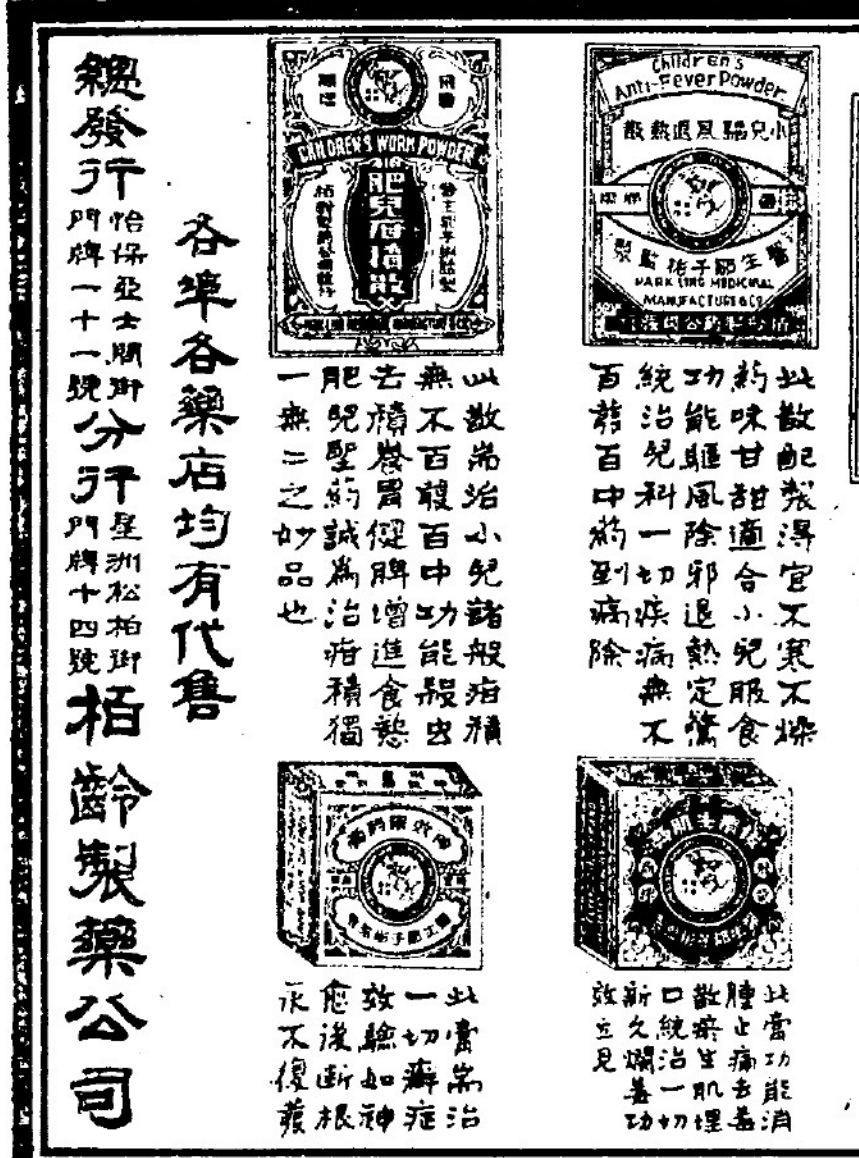 Children's
Anti-Fever Powder
小兒驅風退熱散
PARK LING MEDICINAL
MANUFACTURE & CO
此散配製得宜不寒不燥
药味甘甜適合小兒服食
功能驅風除邪退熱定驚
統治兒科一切疾病無不
百發百中药到病除
CHILDREN'S WORM POWDER
肥兒疳積散
此散耑治小兒諸般疳積
無不百發百中功能殺虫
去積養胃健脾增進食慾
肥兒聖药誠為治疳積獨
一無二之妙品也
此膏功能消
腫止痛去毒
散瘀生肌埋
口統治一切
新久爛毒功
效立見
此膏耑治
一切癬症
效驗如神
愈後断根
永不復發
各埠各藥店均有代售
總發行
怡保亞士間街
門牌一十一號
分行
星洲松柏街
門牌十四號
栢齡製藥公司